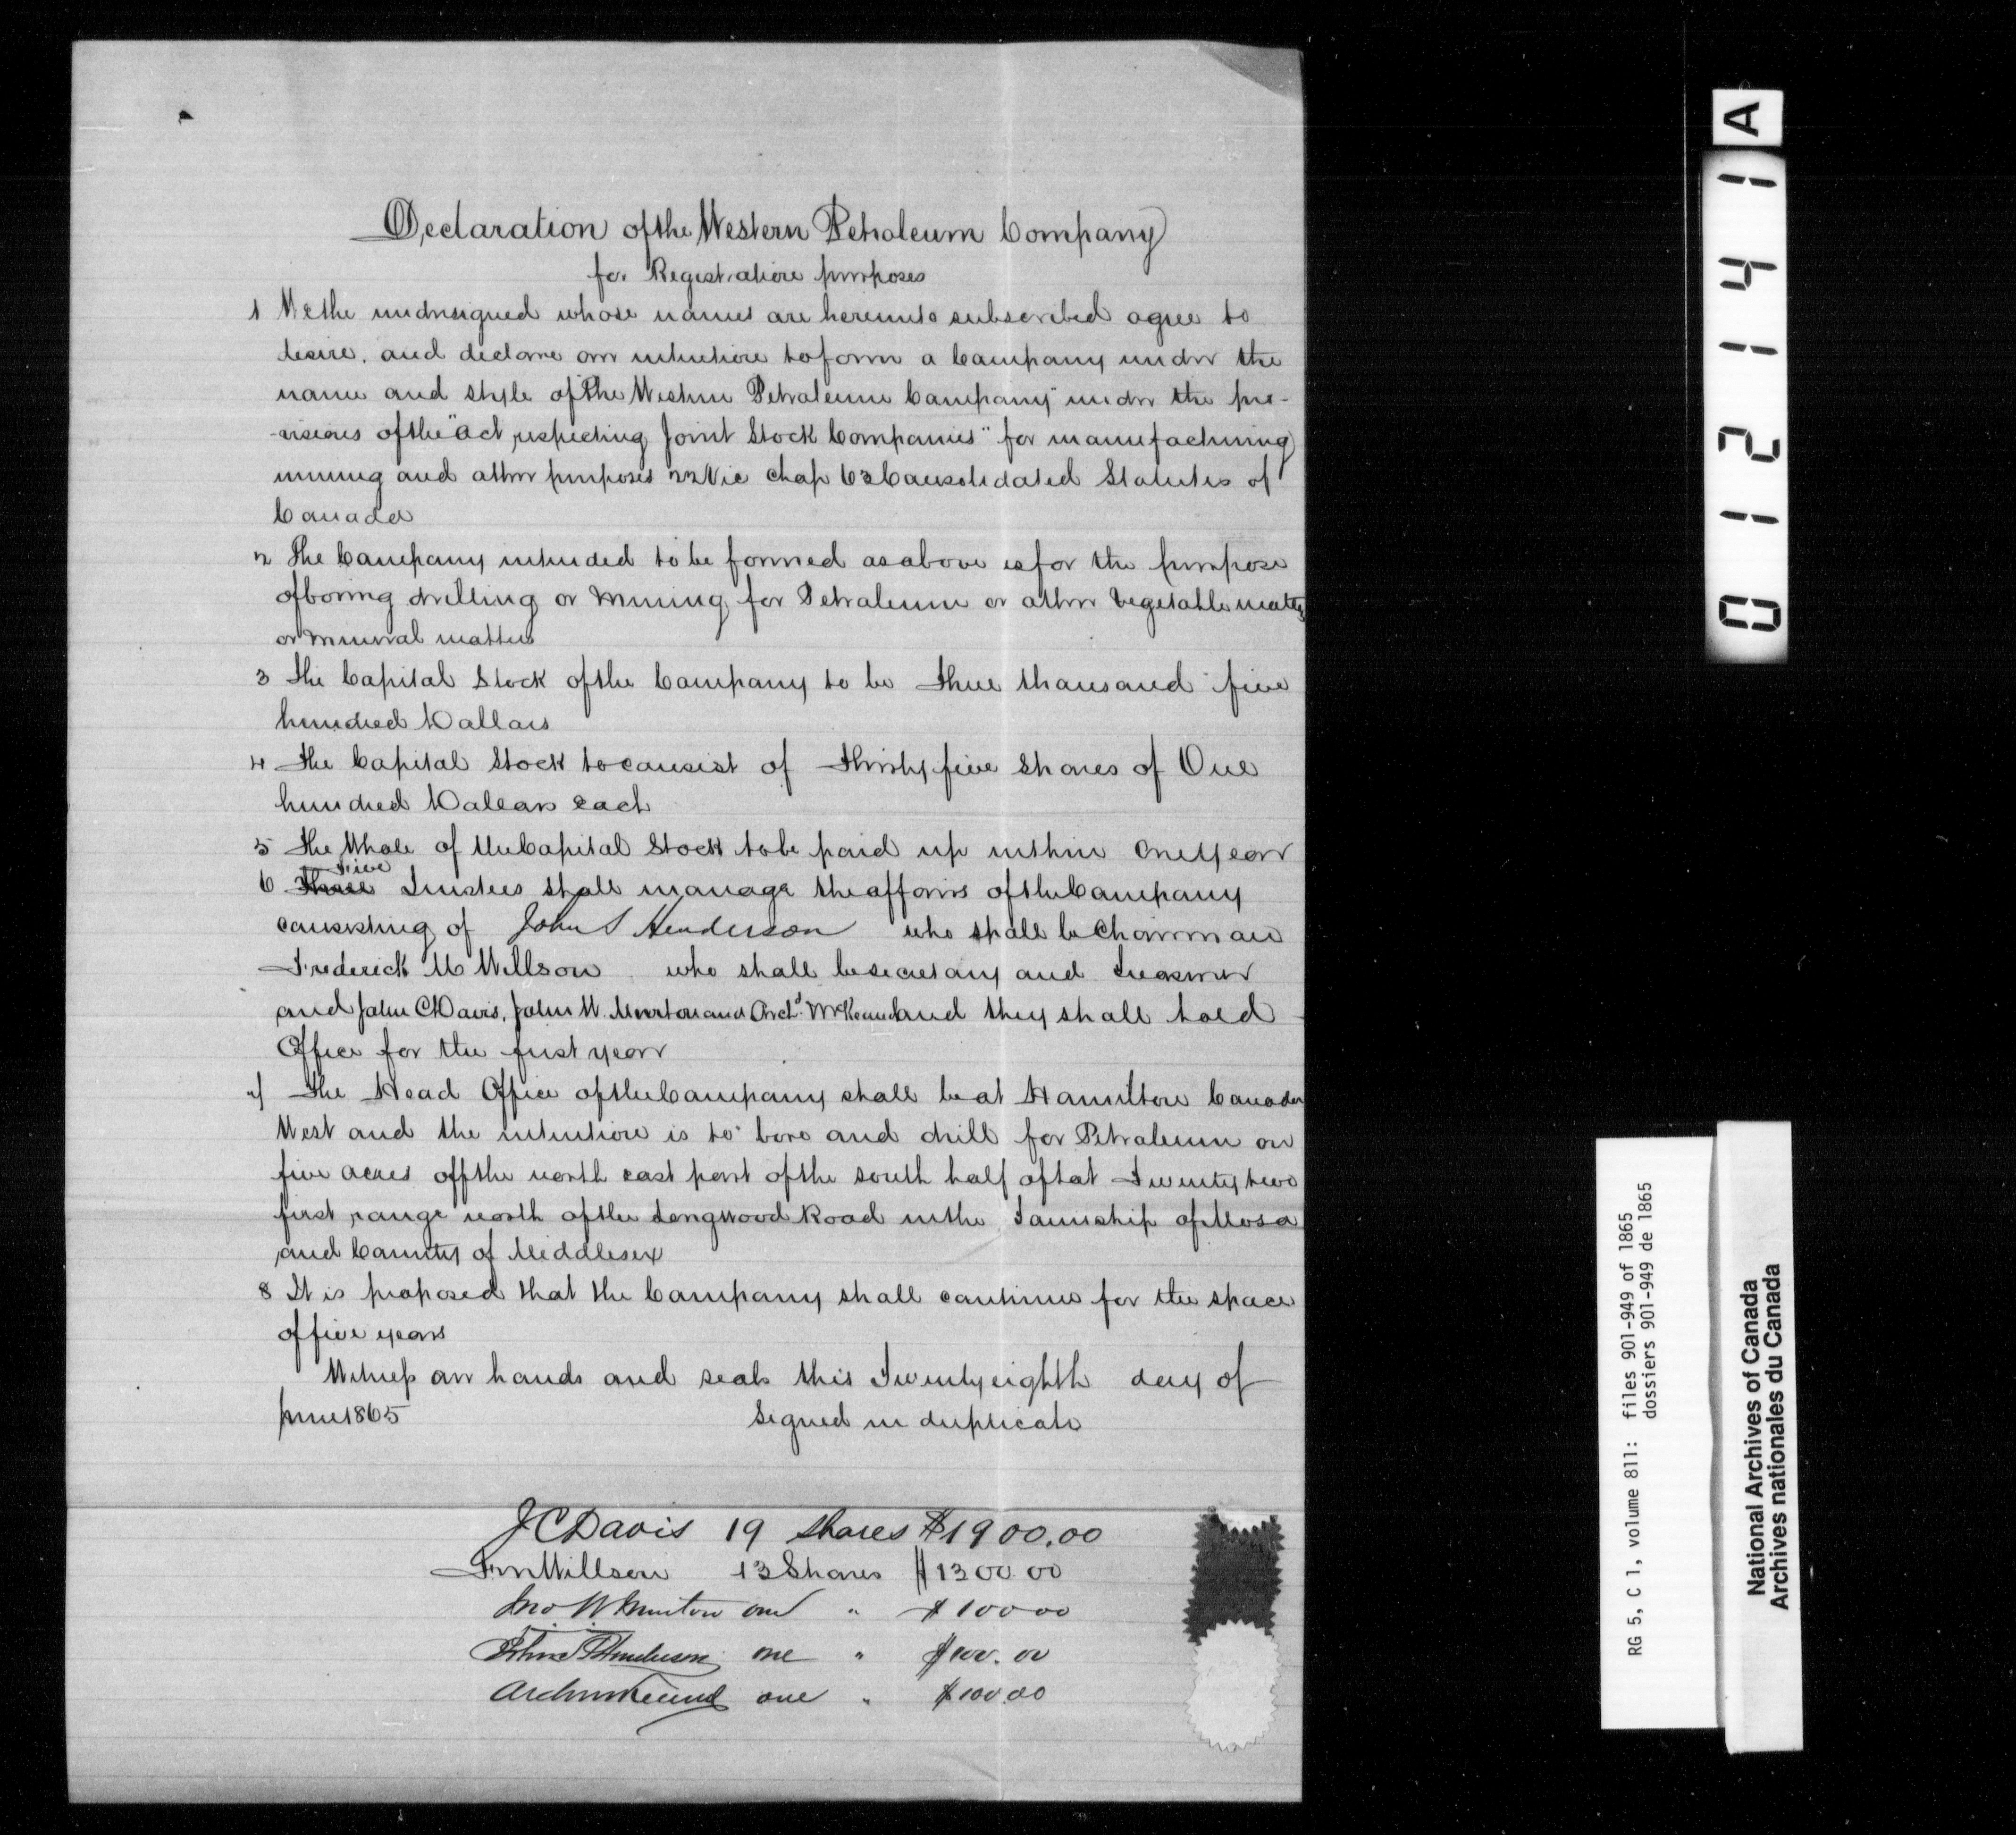 Declaration of the Western Petroleum Company
for Registration purposes
1 We the undersigned whose names are hereunto subscribed agree to
desire, and declare our intention to form a Company under the
name and style of "The Western Petroleum Company" under the pro-
-visions of the "Act respecting Joint Stock Companies" for manufacturing
mining and other purposes 22 Vic Chap 63 Consolidated Statutes of
Canada
2 The Company intended to be formed as above is for the purpose
of boring drilling or mining for Petroleum or other Vegetable matters
or mineral matters
3 The Capital Stock of the Company to be Three thousand five
hundred Dollars
4 The Capital Stock to consist of Thirty five Shares of One
hundred Dollars each
5 The Whole of the Capital Stock to be paid up within One Year
Five
6 Three Trustees shall manage the affairs of the Company
consisting of John S Henderson who shall be Chairman
Frederick M Willson who shall be secretary and Treasurer
and John C Davis, John W. Murton and Arch.d McKeand and they shall hold
Office for the first year
7 The Head Office of the Company shall be at Hamilton Canada
West and the intention is to bore and drill for Petroleum on
five acres off the north east part of the south half of lot Twenty two
first range north of the Longwood Road in the Township of Mosa
and County of Middlesex
8 It is proposed that the Company shall continue for the space
of five years
Witness our hands and seals this Twenty eighth day of
June 1865 Signed in duplicate
J C Davis 19 Shares $1900.00
F M Willson 13 Shares $1300.00
Jno W Murton one " $100 00
John S Henderson one " $100.00
Arch McKeand one " $100.00
0 1 2 1 4 1 A
RG 5, C 1, volume 811: files 901-949 of 1865
dossiers 901-949 de 1865
National Archives of Canada
Archives nationales du Canada